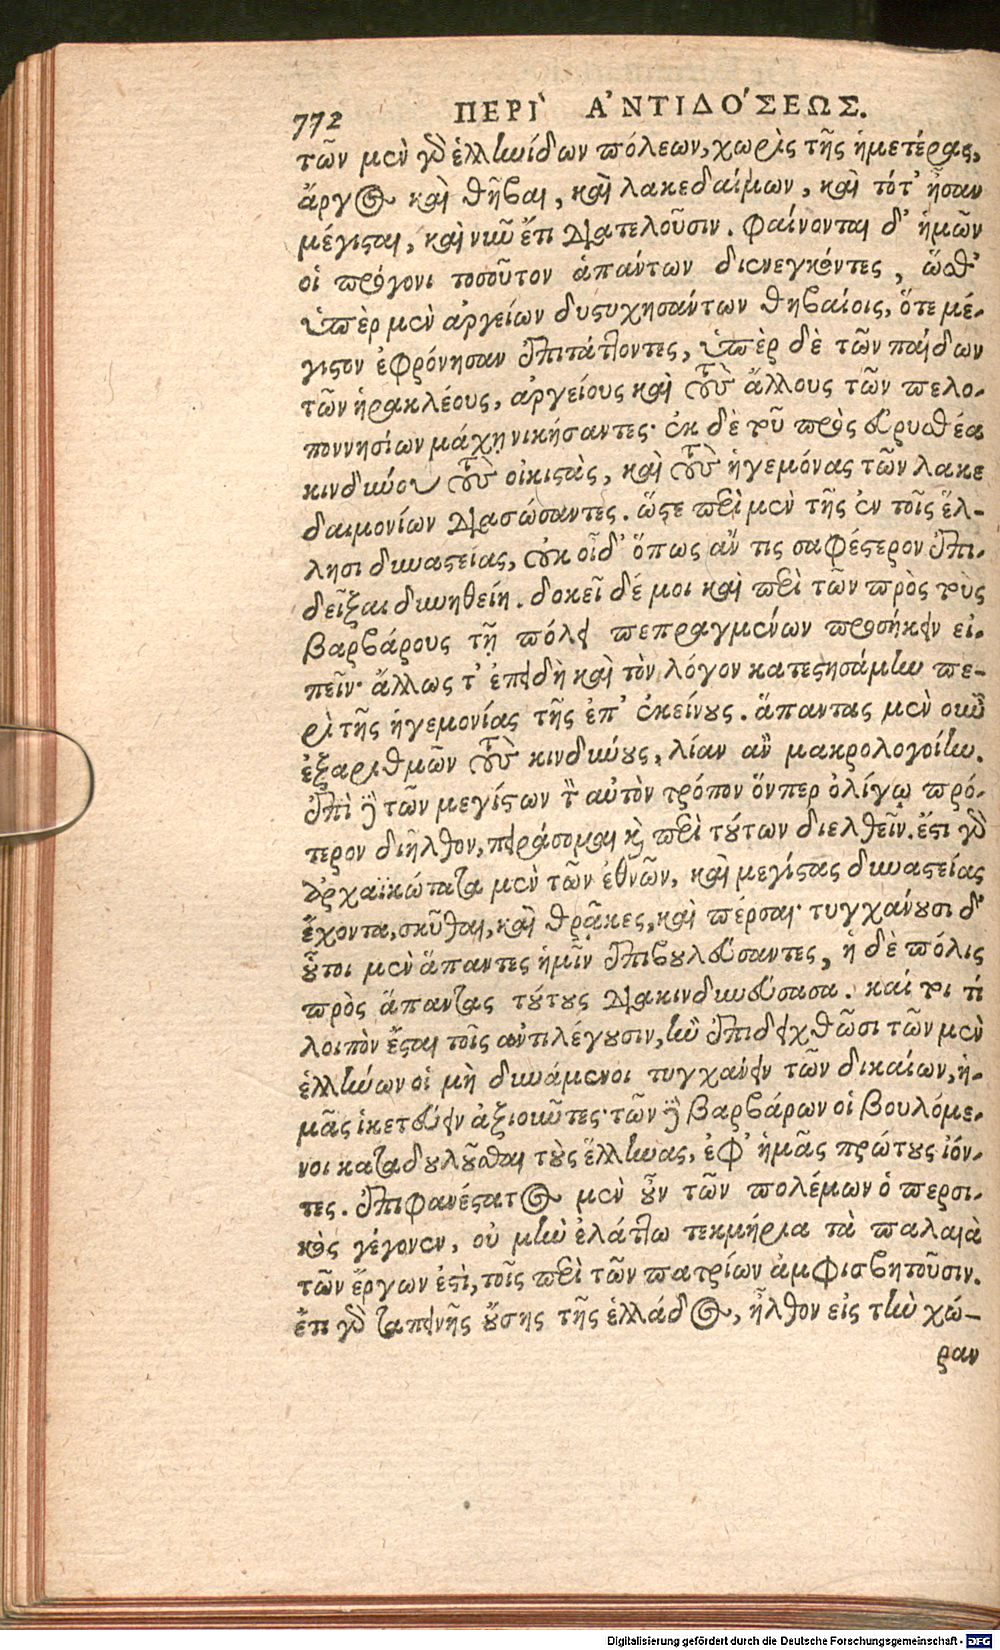 772 ΠΕΡΙ` Α᾿ΝΤΙΔΟ´ΣΕΩΣ.
τῶν μὲν γὸ ἑλληνίδων πόλεων, χωρὶς τῆς ἡμετέρας,
ἄργος καὶ θῆβαι, καὶ λακεδαίμων, καὶ τότ᾽ ἦσαν
μέγισται, καὶ νῦν ἔτι διατελοῦσιν. φαίνονται δ᾽ ἡμῶν
οἱ πρόγονι τοσοῦτον ἁπάντων διενεγκόντες, ὥσθ᾽
ὑπὲρ μὲν ἀργείων δυστυχησάντων θηβαίοις, ὅτε μέ-
γιστον ἐφρόνησαν ἐπιτάττοντες, ὑπὲρ δὲ τῶν παίδων
τῶν ἡρακλέους, ἀργείους καὶ τοὺς ἄλλους τῶν πελο-
ποννησίων μάχῃ νικήσαντες· ἐκ δὲ τοῦ πρὸς εὐρυσθέα
κινδύνου τοὺς οἰκιστὰς, καὶ τοὺς ἡγεμόνας τῶν λακε
δαιμονίων διασώσαντες. ὥστε περὶ μὲν τῆς ἐν τοῖς ἕλ-
λησι δυναστείας, οὐκ οἶδ᾽ ὅπως ἄν τις σαφέστερον ἐπι-
δεῖξαι δυνηθείη. δοκεῖ δέ μοι καὶ περὶ τῶν πρὸς τοὺς
βαρβάρους τῇ πόλει πεπραγμένων προσήκειν εἰ-
πεῖν· ἄλλως τ᾽ ἐπειδὴ καὶ τὸν λόγον κατεστησάμην πε-
ρὶ τῆς ἡγεμονίας τῆς ἐπ᾽ ἐκείνους. ἅπαντας μὲν οὖν
ἐξαριθμῶν τοὺς κινδύνους, λίαν ἂν μακρολογοίην.
ἐπὶ δὲ τῶν μεγίστων τὸν αὐτὸν τρόπον ὅνπερ ὀλίγῳ πρό-
τερον διῆλθον, πειράσομαι καὶ περὶ τούτων διελθεῖν. ἔστι γὸ
ἀρχαϊκώτατα μὲν τῶν ἐθνῶν, καὶ μεγίστας δυναστείας
ἔχοντα, σκῦθαι, καὶ θρᾷκες, καὶ πέρσαι· τυγχάνουσι δ᾽
οὗτοι μὲν ἅπαντες ἡμῖν ἐπιβουλεύσαντες, ἡ δὲ πόλις
πρὸς ἅπαντας τούτους διακινδυνεύσασα. καί τοι τί
λοιπὸν ἔσται τοῖς ἀντιλέγουσιν, ἢν ἐπιδειχθῶσι τῶν μὲν
ἑλλήνων οἱ μὴ δυνάμενοι τυγχάνειν τῶν δικαίων, ἡ-
μᾶς ἱκετεύειν ἀξιοῦντες· τῶν δὲ βαρβάρων οἱ βουλόμε-
νοι καταδουλοῦσθαι τοὺς ἕλληνας, ἐφ᾽ ἡμᾶς πρώτους ἰόν-
τες. ἐπιφανέστατος μὲν οὖν τῶν πολέμων ὁ περσι-
κὸς γέγονεν, οὐ μὴν ἐλάττω τεκμήρια τὰ παλαιὰ
τῶν ἔργων ἐστὶ, τοῖς περὶ τῶν πατρίων ἀμφισβητοῦσιν.
ἔτι γὸ ταπεινῆς οὔσης τῆς ἑλλάδος, ἦλθον εἰς τὴν χώ-
ραν
Digitalisierung gefördert durch die Deutsche Forschungsgemeinschaft - DFG